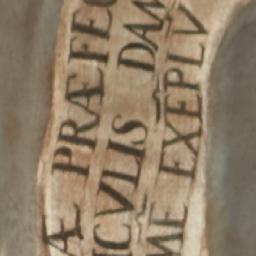 Æ PRÆFEC
ICVLIS DAM
ME EXEPLV